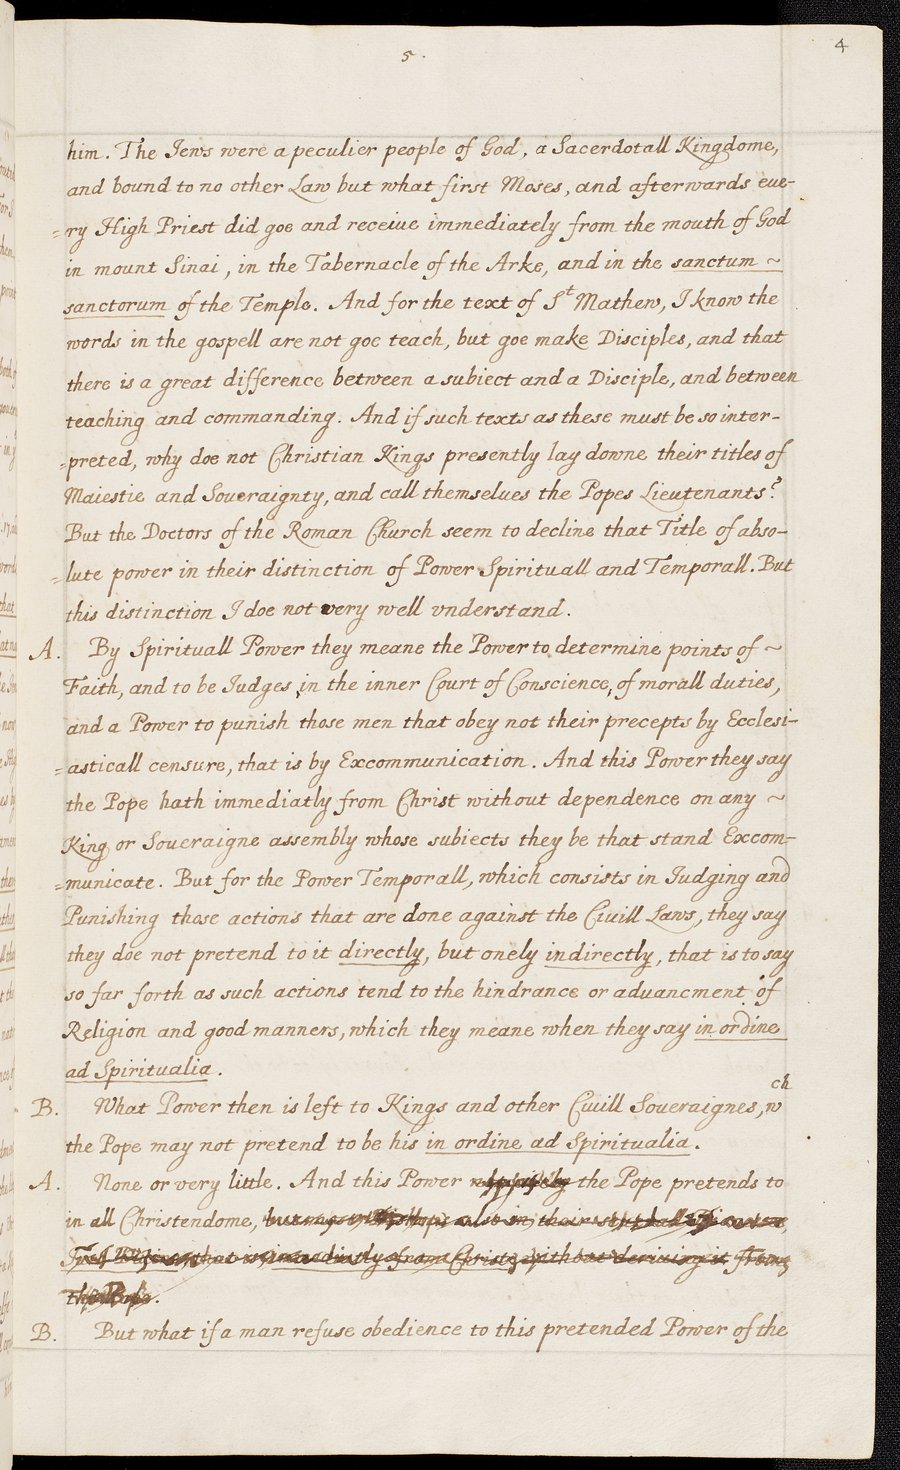 5.
4
him. The Jews were a peculier people of God, a Sacerdotall Kingdome,
and bound to no other Law but what first Moses, and afterwards eue-
=ry High Priest did goe and receiue immediately from the mouth of God
in mount Sinai, in the Tabernacle of the Arke, and in the sanctum ~
sanctorum of the Temple. And for the text of St Mathew, I know the
words in the gospell are not goe teach, but goe make Disciples, and that
there is a great difference between a subiect and a Disciple, and between
teaching and commanding. And if such texts as these must be so inter-
=preted, why doe not Christian Kings presently lay downe their titles of
Maiestie and Soueraignty, and call themselues the Popes Lieutenants?
But the Doctors of the Roman Church seem to decline that Title of abso-
=lute power in their distinction of Power Spirituall and Temporall. But
this distinction I doe not very well vnderstand.
A. By Spirituall Power they meane the Power to determine points of ~
Faith, and to be Judges, in the inner Court of Conscience, of morall duties,
and a Power to punish those men that obey not their precepts by Ecclesi-
=asticall censure, that is by Excommunication. And this Power they say
the Pope hath immediatly from Christ without dependence on any ~
King or Soueraigne assembly whose subiects they be that stand Excom-
=municate. But for the Power Temporall, which consists in Judging and
Punishing those actions that are done against the Ciuill Laws, they say
they doe not pretend to it directly, but onely indirectly, that is to say
so far forth as such actions tend to the hindrance or aduancment of
Religion and good manners, which they meane when they say in ordine
ad Spiritualia.
B. What Power then is left to Kings and other Ciuill Soueraignes, wch
the Pope may not pretend to be his in ordine ad Spiritualia.
A. None or very little. And this Power the Pope pretends to
in all Christendome, but also in their
that immediatly from Christ without deriuing it from
the Pope.
B. But what if a man refuse obedience to this pretended Power of the